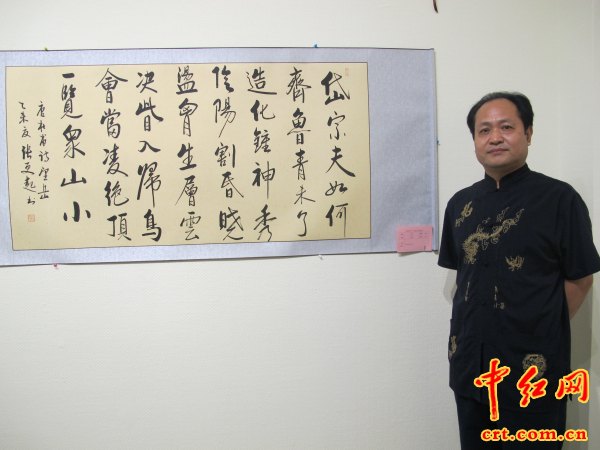 岱宗夫如何
齊魯青未了
造化鐘神秀
陰陽割昏曉
盪胷生層雲
决眥入歸鳥
會當凌絕頂
一覽衆山小
唐杜甫詩望岳
乙未夏
中红网
crt.com.cn